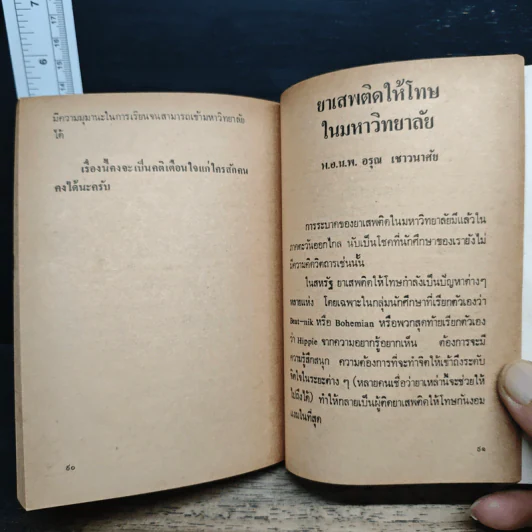 มีความมุมานะในการเรียนจนสามารถเข้ามหาวิทยาลัย
ได้
เรื่องนี้คงจะเป็นคติเตือนใจแก่ใครสักคน
คงได้นะครับ
๕๐
ยาเสพติดให้โทษ
ในมหาวิทยาลัย
พ.อ.น.พ. อรุณ เชาวนาศัย
การระบาดของยาเสพติดในมหาวิทยาลัยมีแล้วใน
ภาคตะวันออกไกล นับเป็นโชคที่นักศึกษาของเรายังไม่
มีความคิดวิตถารเช่นนั้น
ในสหรัฐ ยาเสพติดให้โทษกำลังเป็นปัญหาต่างๆ
หลายแห่ง โดยเฉพาะในกลุ่มนักศึกษาที่เรียกตัวเองว่า
Beat-nik หรือ Bohemian หรือพวกสุดท้ายเรียกตัวเอง
ว่า Hippie จากความอยากรู้อยากเห็น ต้องการจะมี
ความรู้สึกสนุก ความต้องการที่จะทำจิตให้เข้าถึงระดับ
จิตใจในระยะต่าง ๆ (หลายคนเชื่อว่ายาเหล่านี้จะช่วยให้
ไปถึงได้) ทำให้กลายเป็นผู้ติดยาเสพติดให้โทษกันงอม
แงมในที่สุด
๕๑
7
6